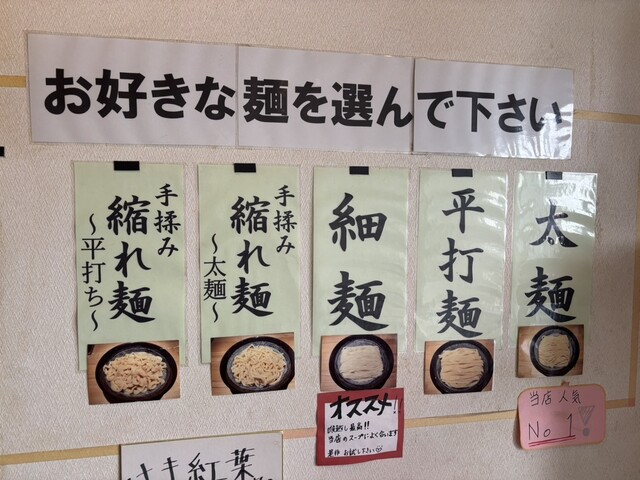 お好きな麺を選んで下さい
太麺
平打麺
細麺
手揉み
縮れ麺
～太麺～
手揉み
縮れ麺
～平打ち～
当店人気
No 1!
オススメ!
当店のスープによく合います
是非お試し下さい
紅葉